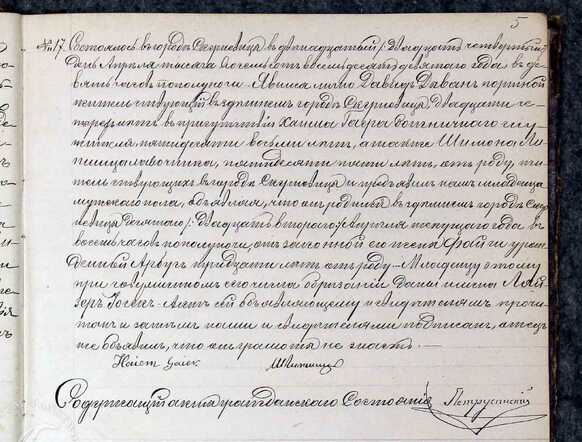 5
№ 17. Состоялось въ городѣ Скерневицѣ въ двѣнадцатый /: двадцать четвертый
день Апрѣля тысяча восемьсотъ восемьдесятъ девятаго года въ де-
вять часовъ пополуночи. Явился лично Давидъ портной
жительствующій въ здѣшнемъ городѣ Скерневицѣ двадцати че-
тырехъ лѣтъ въ присутствіи Хаима больничнаго слу-
жителя, пятидесяти восьми лѣтъ, а также Шимона Ли-
пшица лавочника, пятидесяти пяти лѣтъ отъ роду, жи-
тельствующихъ въ городѣ Скерневицѣ и предъявилъ намъ младенца
мужескаго пола, объявляя, что онъ родился въ здѣшнемъ городѣ Скер-
невицѣ десятаго /: двадцать втораго Февраля текущаго года въ
восемь часовъ пополуночи, отъ законной его жены Файги урож-
денной тридцати лѣтъ отъ роду. Младенцу этому
при совершенномъ сего числа обрѣзаніи дано имена Лай-
зеръ Іосекъ. Актъ сей объявляющему и свидѣтелямъ прочи-
танъ и затѣмъ нами и свидѣтелями подписанъ, отецъ
же объявилъ, что онъ грамотѣ не знаетъ.
Содержащій акты гражданскаго состоянія